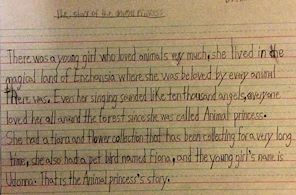 The story of the animal princess
There was a young girl who loved animals very much, she lived in the
magical land of Enchansia where she was beloved by every animal
there was. Even her singing sounded like ten thousand angels, everyone
loved her all around the forest since she was called Animal princess.
She had a tiara and flower collection that has been collecting for a very long
time, she also had a pet bird named Fiona, and the young girl's name is
That is the Animal princess's story.